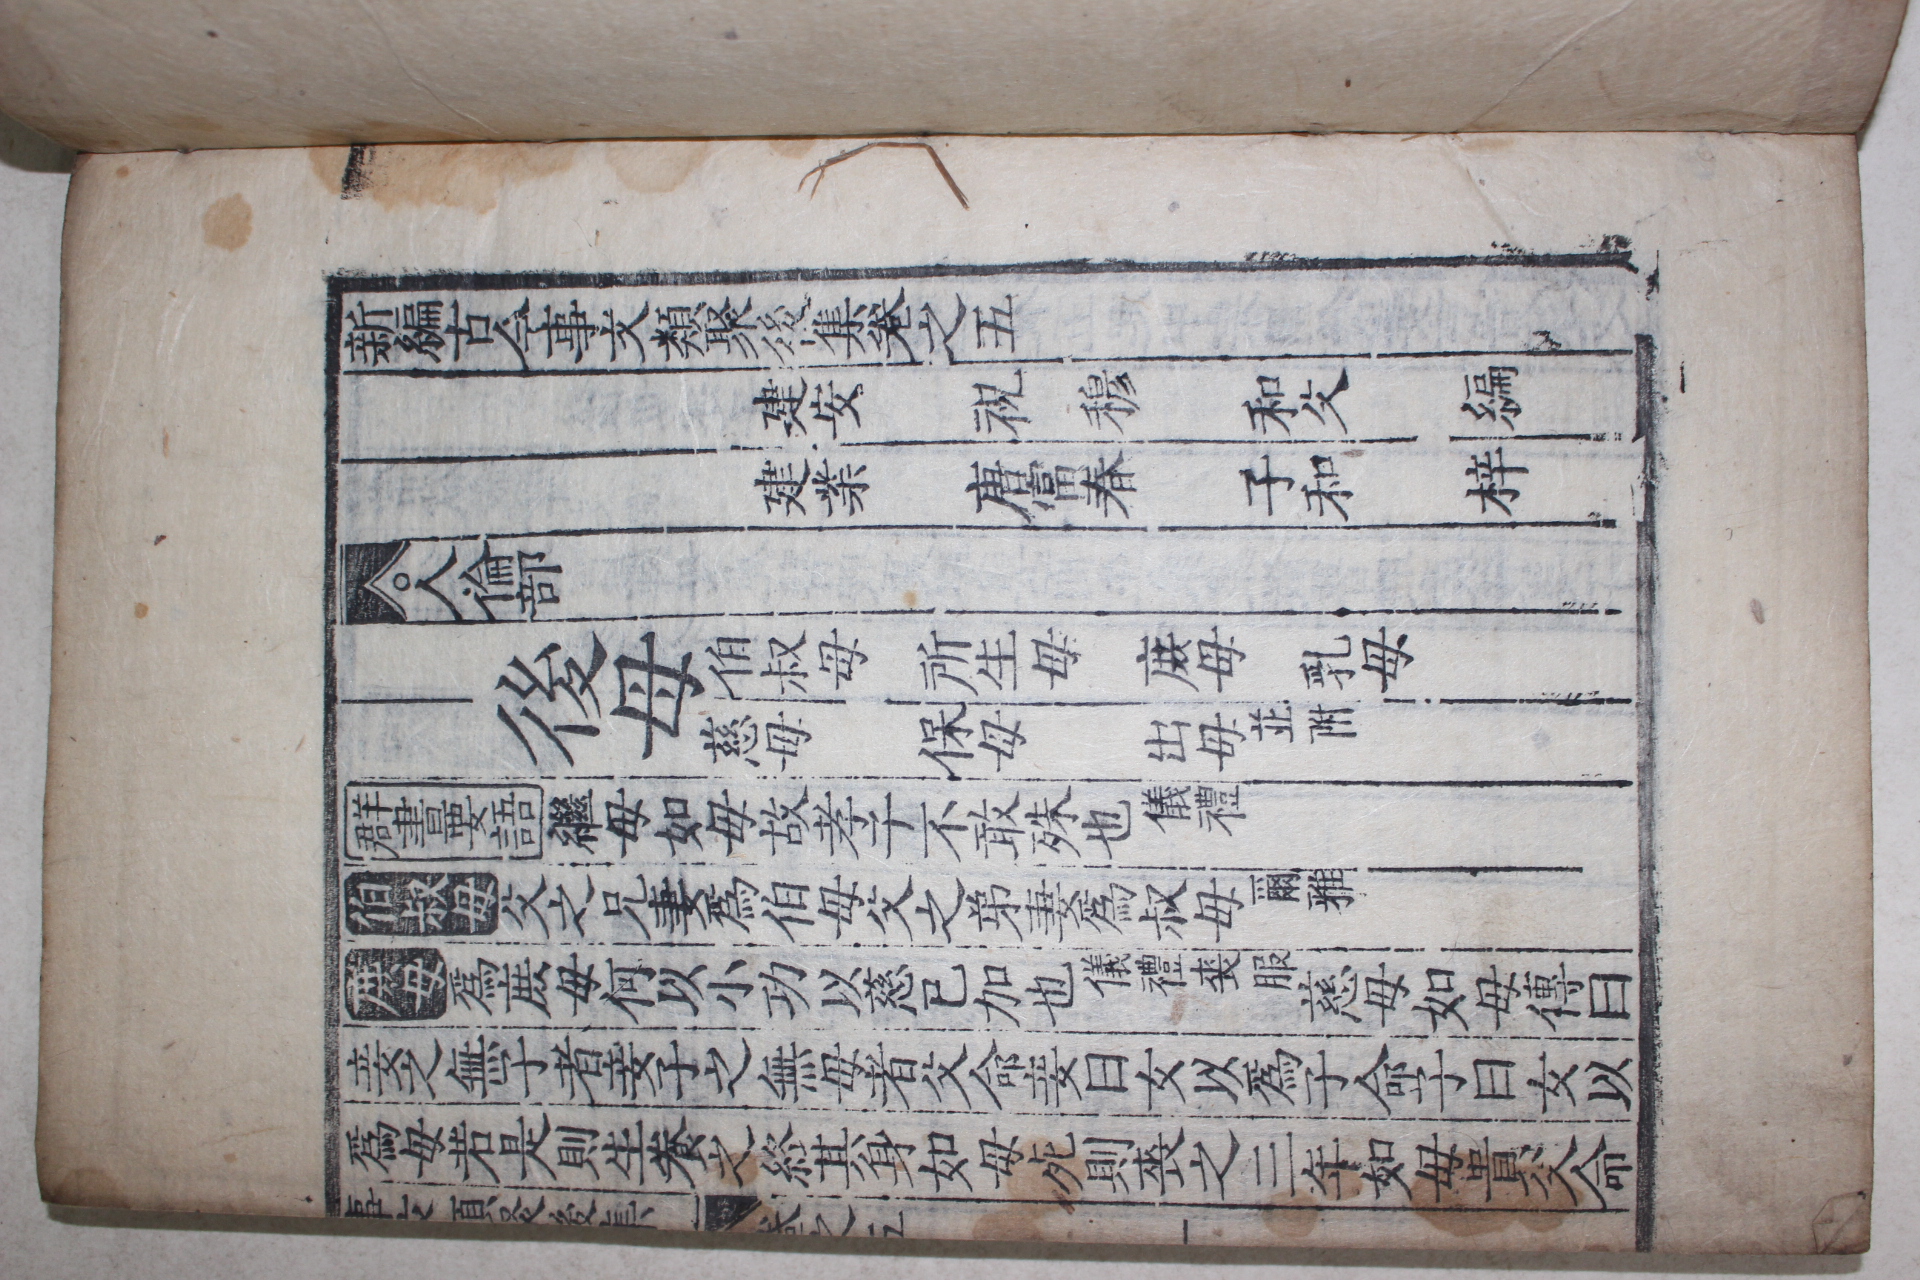 新編古今事文類聚後集卷之五
建安 祝穆 和父 編
建業 唐富春 子和 梓
人倫部
後母 伯叔母 所生母 庶母 乳母
慈母 保母 出母並附
群書要語 繼母如母故孝子不敢殊也 儀禮
伯叔母 父之兄妻爲伯母父之弟妻爲叔母 爾雅
庶母 爲庶母何以小功以慈已加也 儀禮喪服 慈母如母傳曰
妾之無子者妾子之無母者父命妾曰女以爲子命子曰女以
爲母若是則生養之終其身如母死則喪之三年如母貴父命
事文類聚後集 卷之五 一